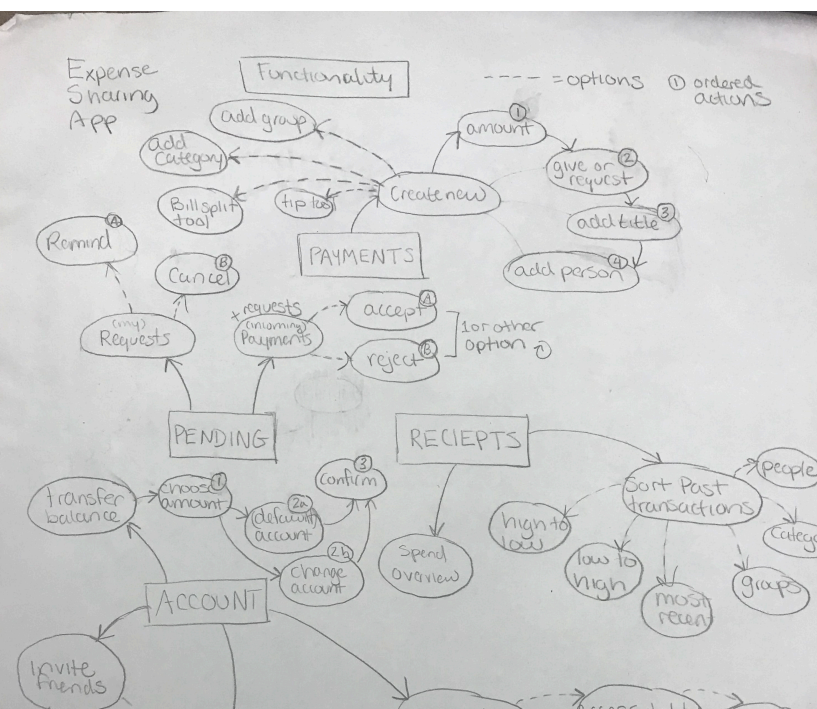 Expense
Sharing
App
Functionality
---- = options
① ordered
actions
add group
add
category
Bill split
tool
tip tool
Create new
① amount
② give or
request
③ add title
④ add person
PAYMENTS
Ⓐ Remind
Ⓑ Cancel
(my)
Requests
+ requests
(incoming)
Payments
Ⓐ accept
Ⓑ reject
1 or other
option
PENDING
RECIEPTS
transfer
balance
① choose
amount
②a default
account
②b change
account
③ confirm
Spend
overview
Sort Past
transactions
high to
low
low to
high
most
recent
groups
Catego
people
ACCOUNT
Invite
friends